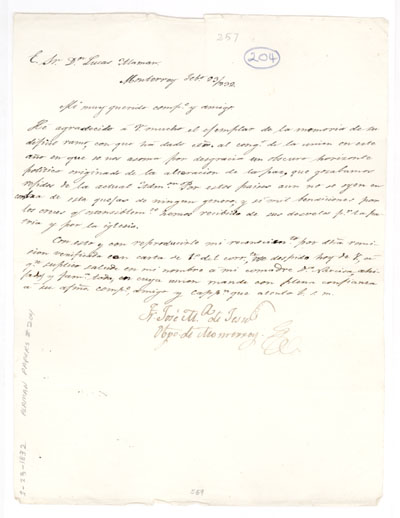 257
204
E. Sr. Dn. Lucas Alaman.
Monterrey Feb. 29/832
Mi muy querido comp.e y amigo
He agradecido á V mucho el ejemplar de la memoria de su
difícil ramo, con que ha dado al cong.o de la union en este
año en que se nos asoma por desgracia un obscuro horizonte
politico originado de la alteracion de la paz, que gozabamos
de la actual Por estos paises aun no se oyen en
contra de este quejas de ningun genero, y si mil bendiciones por
los que hemos recibido de sus desvelos p.r la pa
tria y por la iglesia.
Con esto, y con reproducirle mi por dha remi
sion verificada con carta de 1º del corr.te me despido hoy de V, á
q.n suplico salude en mi nombre á mi comadre D.a Narcisa, ahi
jado, y fam.a toda, en cuya union mande con plena confianza
á su afmo comp.e Amigo y capp.n que atento b. s. m.
Fr. José M.a de Jesus
Obpo de Monterrey
2-29-1832 ALAMAN PAPERS #204
257